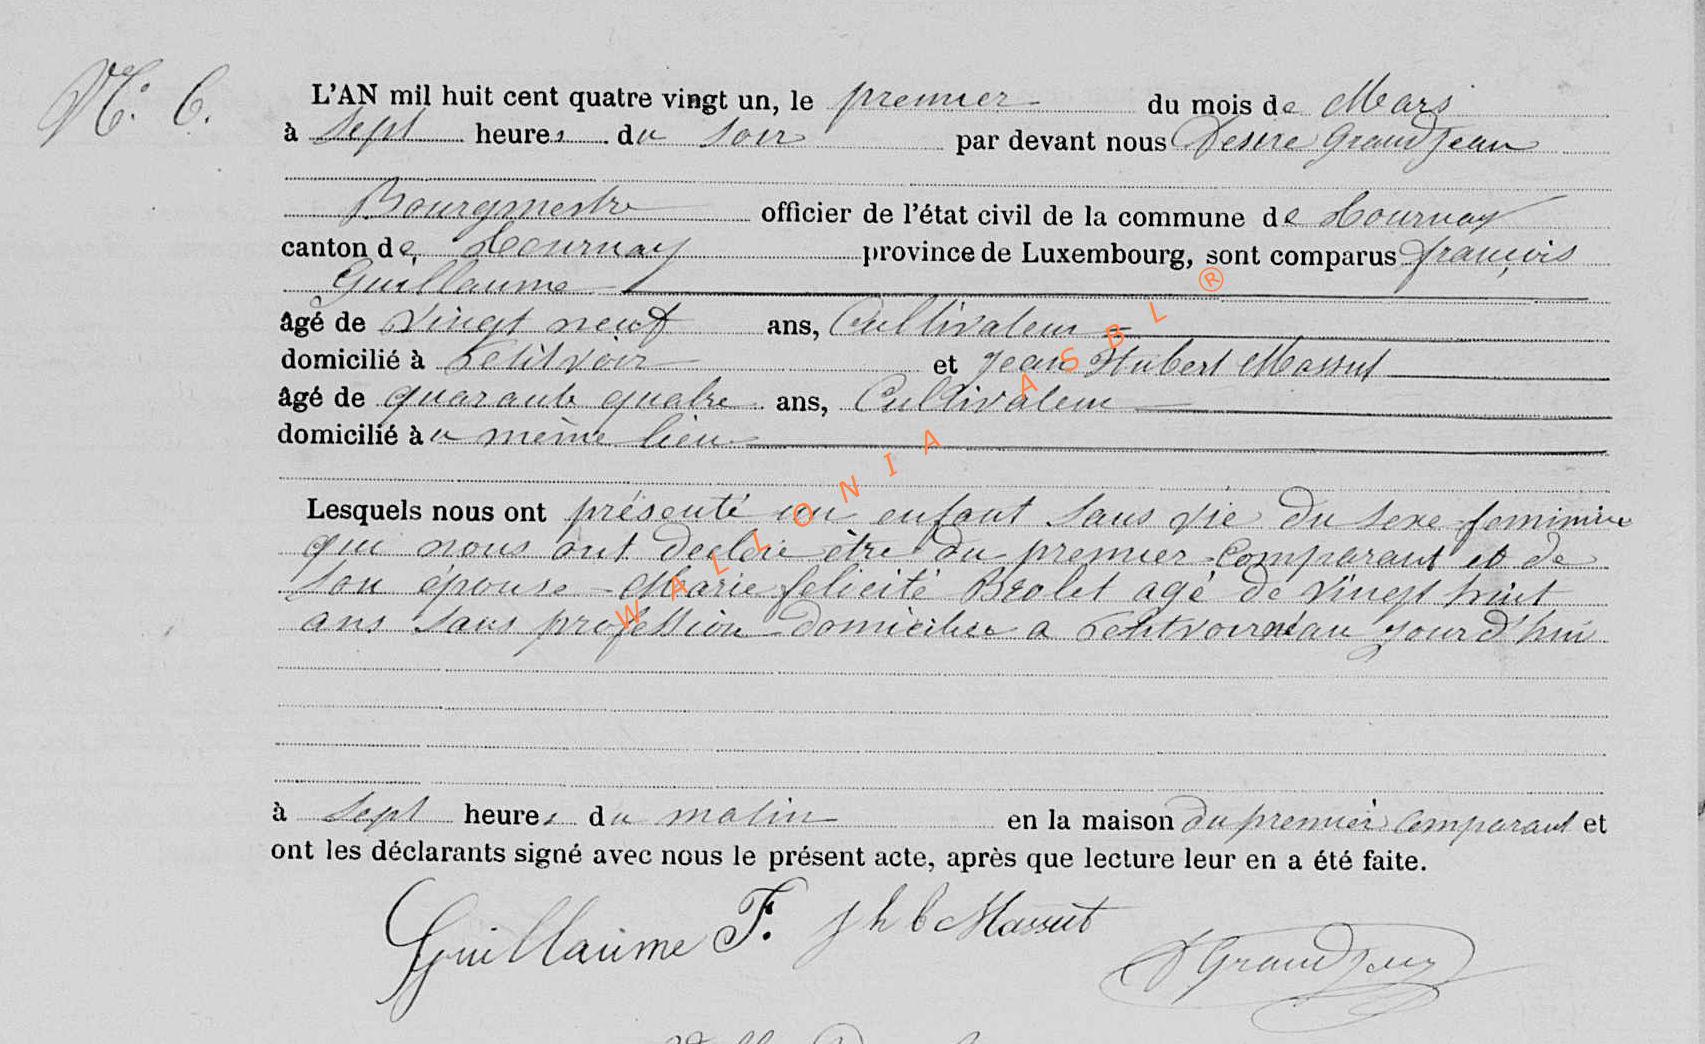 N°. 6.
L'AN mil huit cent quatre vingt un, le premier du mois de Mars
à sept heures du soir par devant nous Desire Grandjean
Bourgmestre officier de l'état civil de la commune de Tournay
canton de Tournay province de Luxembourg, sont comparus françois
Guillaume
âgé de vingt neuf ans, Cultivateur
domicilié à Petitvoir et Jean Hubert Massut
âgé de quarante quatre ans, Cultivateur
domicilié àu même lieu
Lesquels nous ont présenté un enfant sans vie du sexe feminine
que nous ont declaré être du premier Comparant et de
son épouse Marie felicité agé de vingt huit
ans sans profession domiciliee a Petitvoir né au jourd'hui
à sept heures du matin en la maison du premier comparant et
ont les déclarants signé avec nous le présent acte, après que lecture leur en a été faite.
Guillaume F. J h b Massut
D Grandjean
WALLONIA ASBL ®